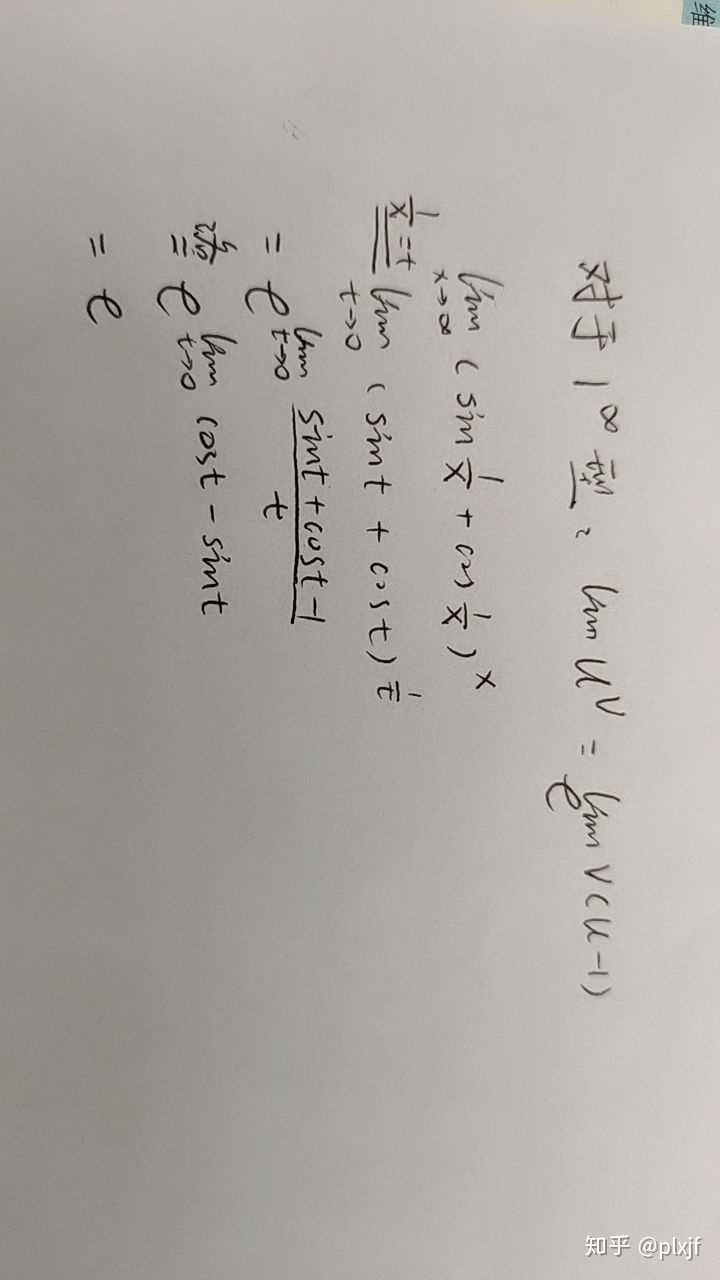 对于 1^∞ 型, lim U^V = e^{lim V(U-1)}
lim_{x→∞} (sin 1/x + cos 1/x)^x
1/x=t == lim_{t→0} (sint + cost)^{1/t}
= e^{lim_{t→0} (sint+cost-1)/t}
洛 = e^{lim_{t→0} cost - sint}
= e
维
知乎 @plxjf